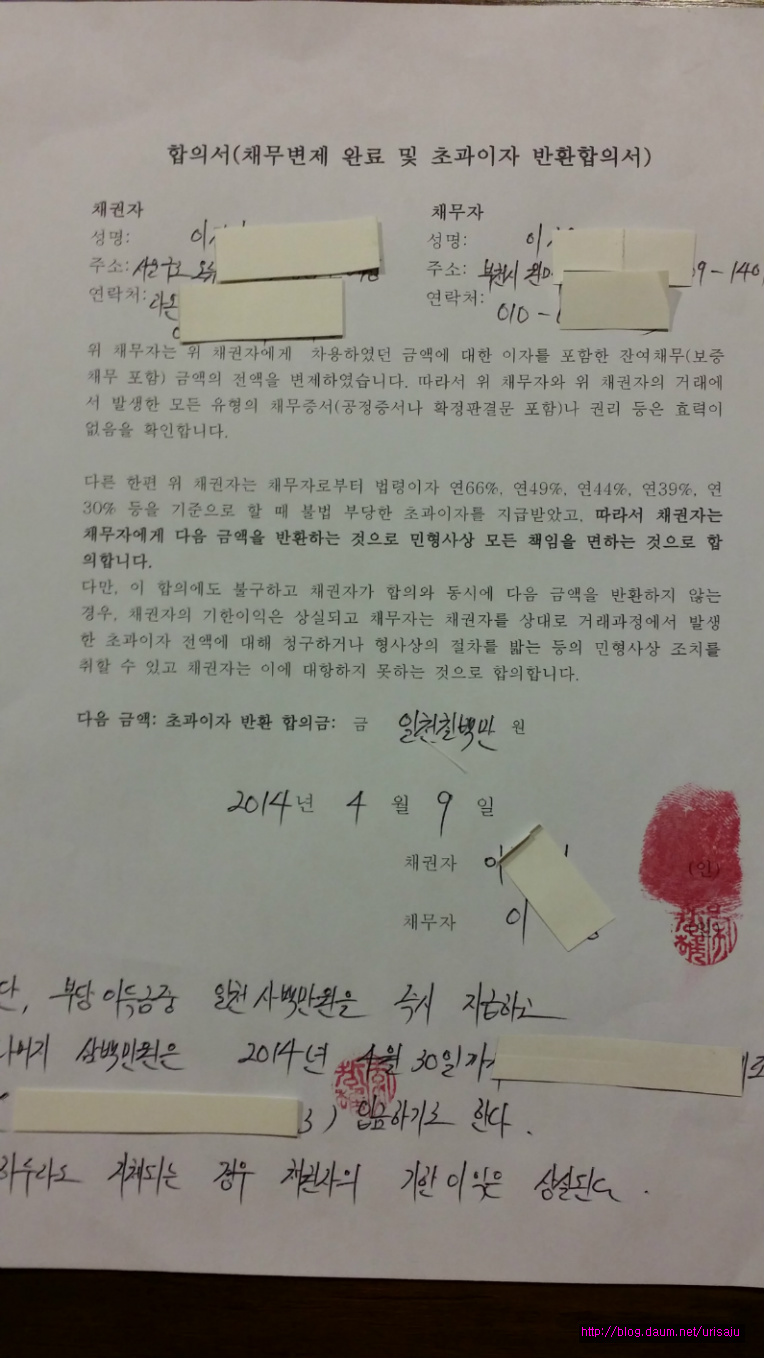 합의서(채무변제 완료 및 초과이자 반환합의서)
채권자 채무자
성명: 이 성명: 이
주소: 주소: 부천시 9-140
연락처: 연락처: 010-
위 채무자는 위 채권자에게 차용하였던 금액에 대한 이자를 포함한 잔여채무(보증
채무 포함) 금액의 전액을 변제하였습니다. 따라서 위 채무자와 위 채권자의 거래에
서 발생한 모든 유형의 채무증서(공정증서나 확정판결문 포함)나 권리 등은 효력이
없음을 확인합니다.
다른 한편 위 채권자는 채무자로부터 법령이자 연66%, 연49%, 연44%, 연39%, 연
30% 등을 기준으로 할 때 불법 부당한 초과이자를 지급받았고, 따라서 채권자는
채무자에게 다음 금액을 반환하는 것으로 민형사상 모든 책임을 면하는 것으로 합
의합니다.
다만, 이 합의에도 불구하고 채권자가 합의와 동시에 다음 금액을 반환하지 않는
경우, 채권자의 기한이익은 상실되고 채무자는 채권자를 상대로 거래과정에서 발생
한 초과이자 전액에 대해 청구하거나 형사상의 절차를 밟는 등의 민형사상 조치를
취할 수 있고 채권자는 이에 대항하지 못하는 것으로 합의합니다.
다음 금액: 초과이자 반환 합의금: 금 일천칠백만 원
2014년 4 월 9 일
채권자 이 (인)
채무자 이
단, 부당이득금중 일천사백만원을 즉시 지급하고
나머지 삼백만원은 2014년 4월 30일까지 로
( 3) 입금하기로 한다.
하루라도 지체되는 경우 채권자의 기한이익은 상실된다.
http://blog.daum.net/urisaju